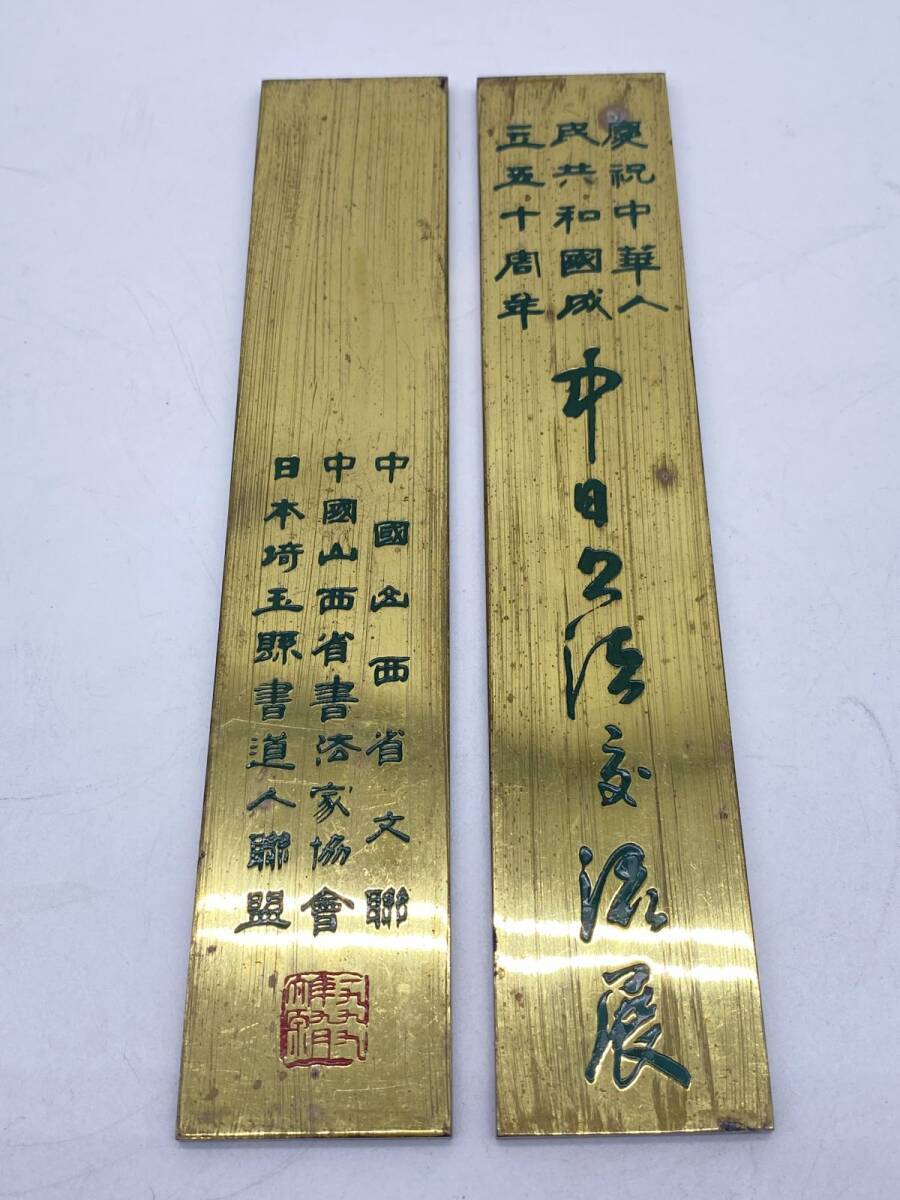 慶祝中華人
民共和國成
立五十周年
中日书法交流展
中國山西省文聯
中國山西省書法家協會
日本埼玉縣書道人聯盟